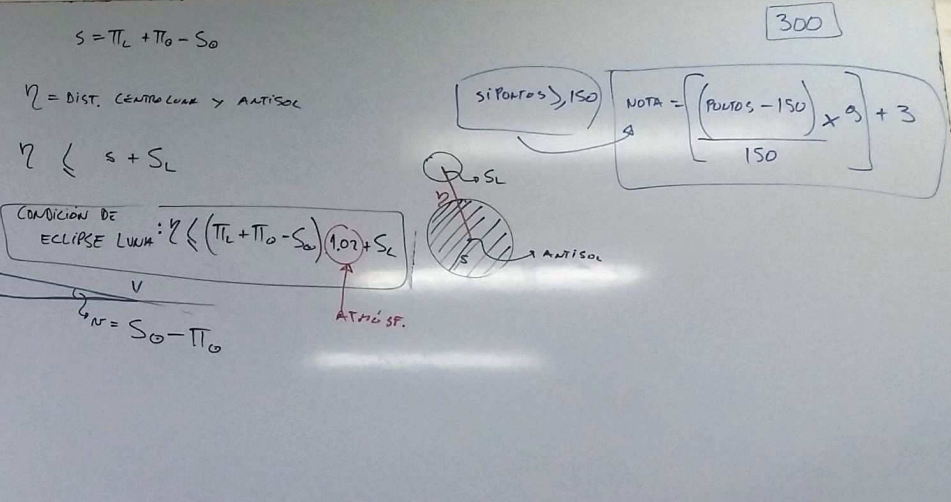 300
s = π_L + π_⊙ − S_⊙
η = DIST. CENTRO LUNA Y ANTISOL
η ≤ s + S_L
SI PUNTOS ≥ 150
NOTA = [(PUNTOS − 150) / 150 × 9] + 3
CONDICIÓN DE
ECLIPSE LUNA: η ≤ (π_L + π_⊙ − S_⊙) 1.02 + S_L
ATMÓSF.
S_L
η
s
ANTISOL
V
v = S_⊙ − π_⊙